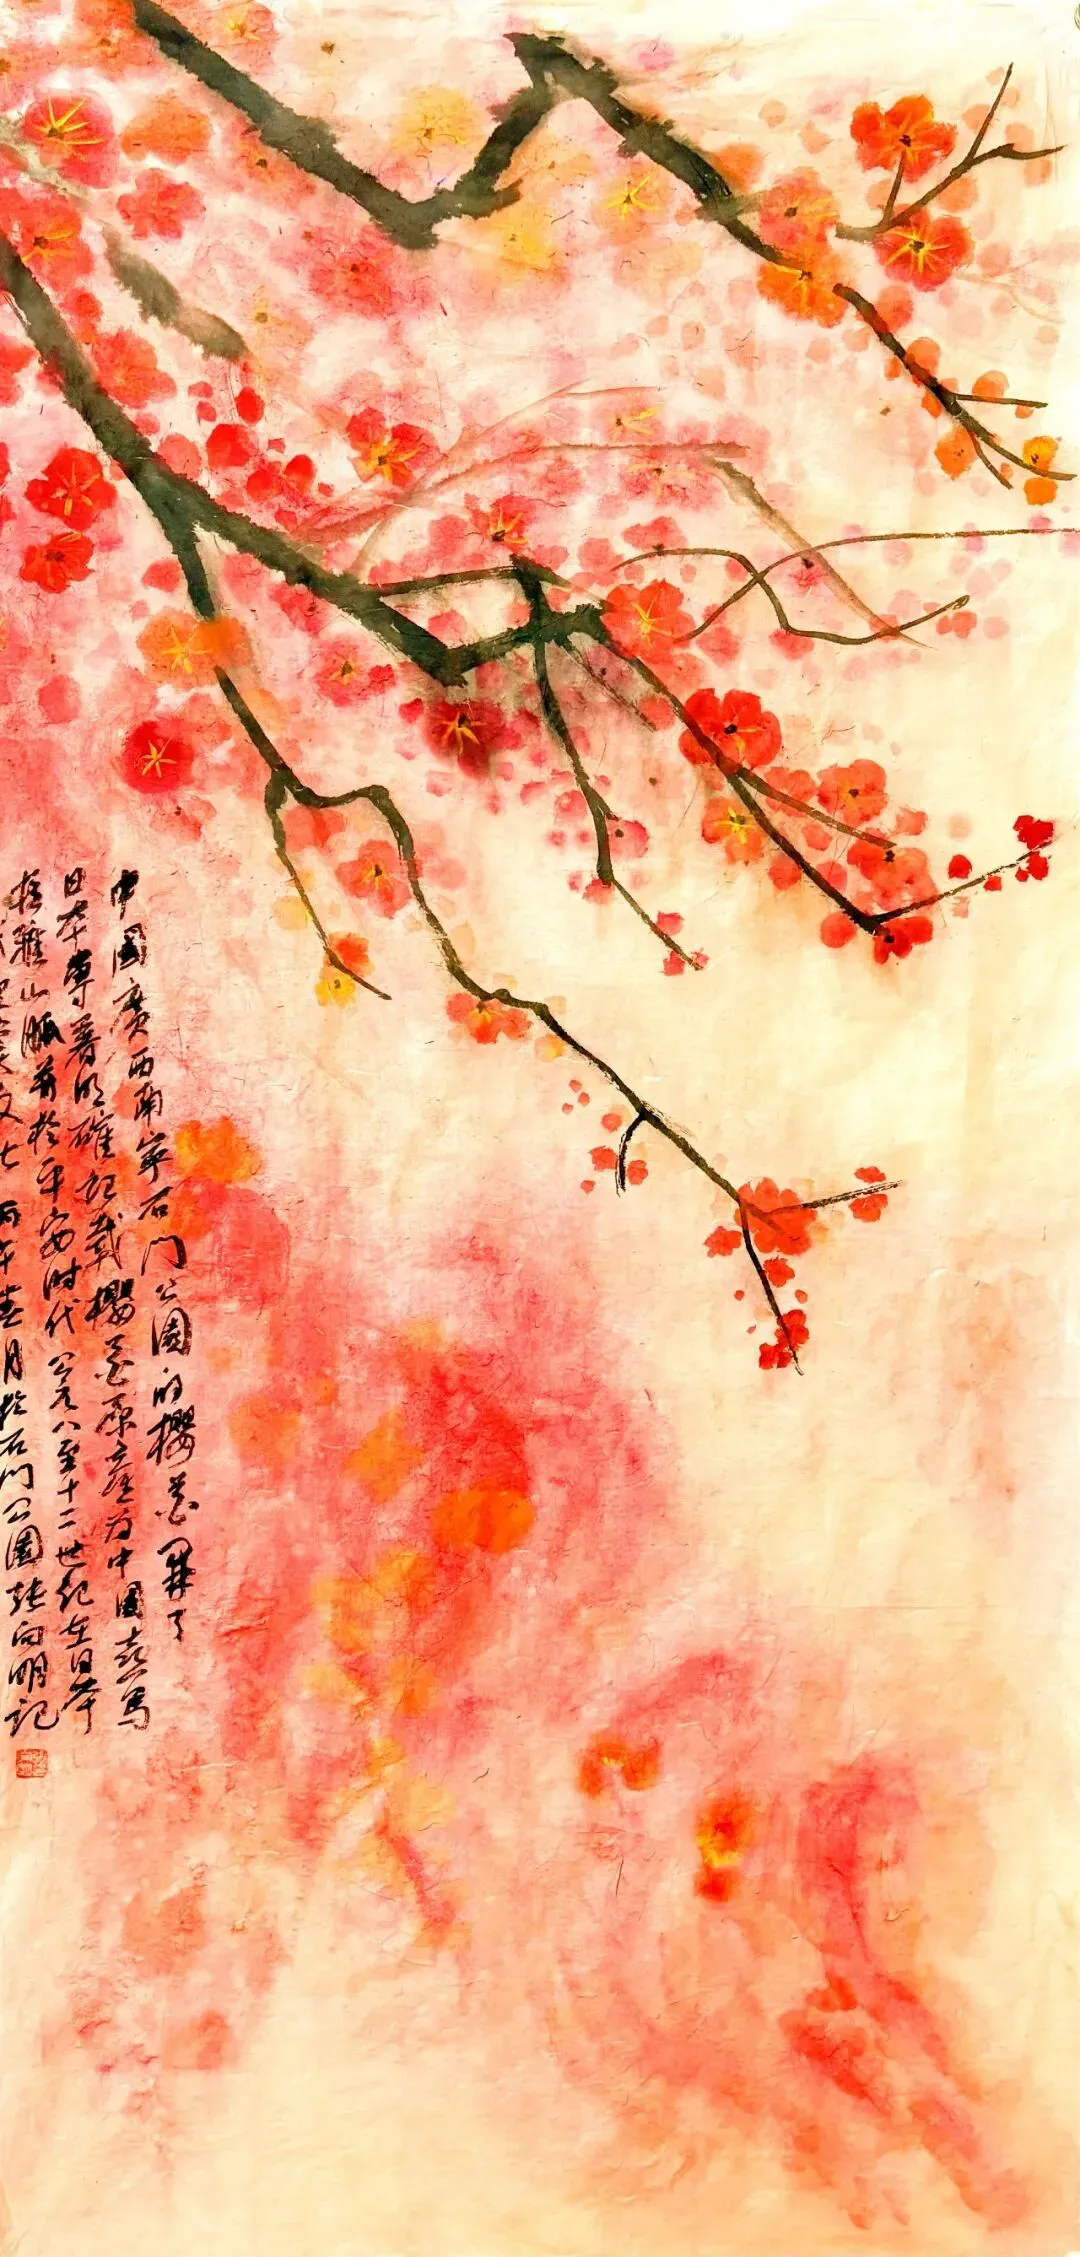 中國廣西南寧石門公園的櫻花開了
日本專著明確記載櫻花原產為中國喜馬
拉雅山脈前於平安时代公元八至十二世紀在日本
文化 丙午春月於石門公園張向明記